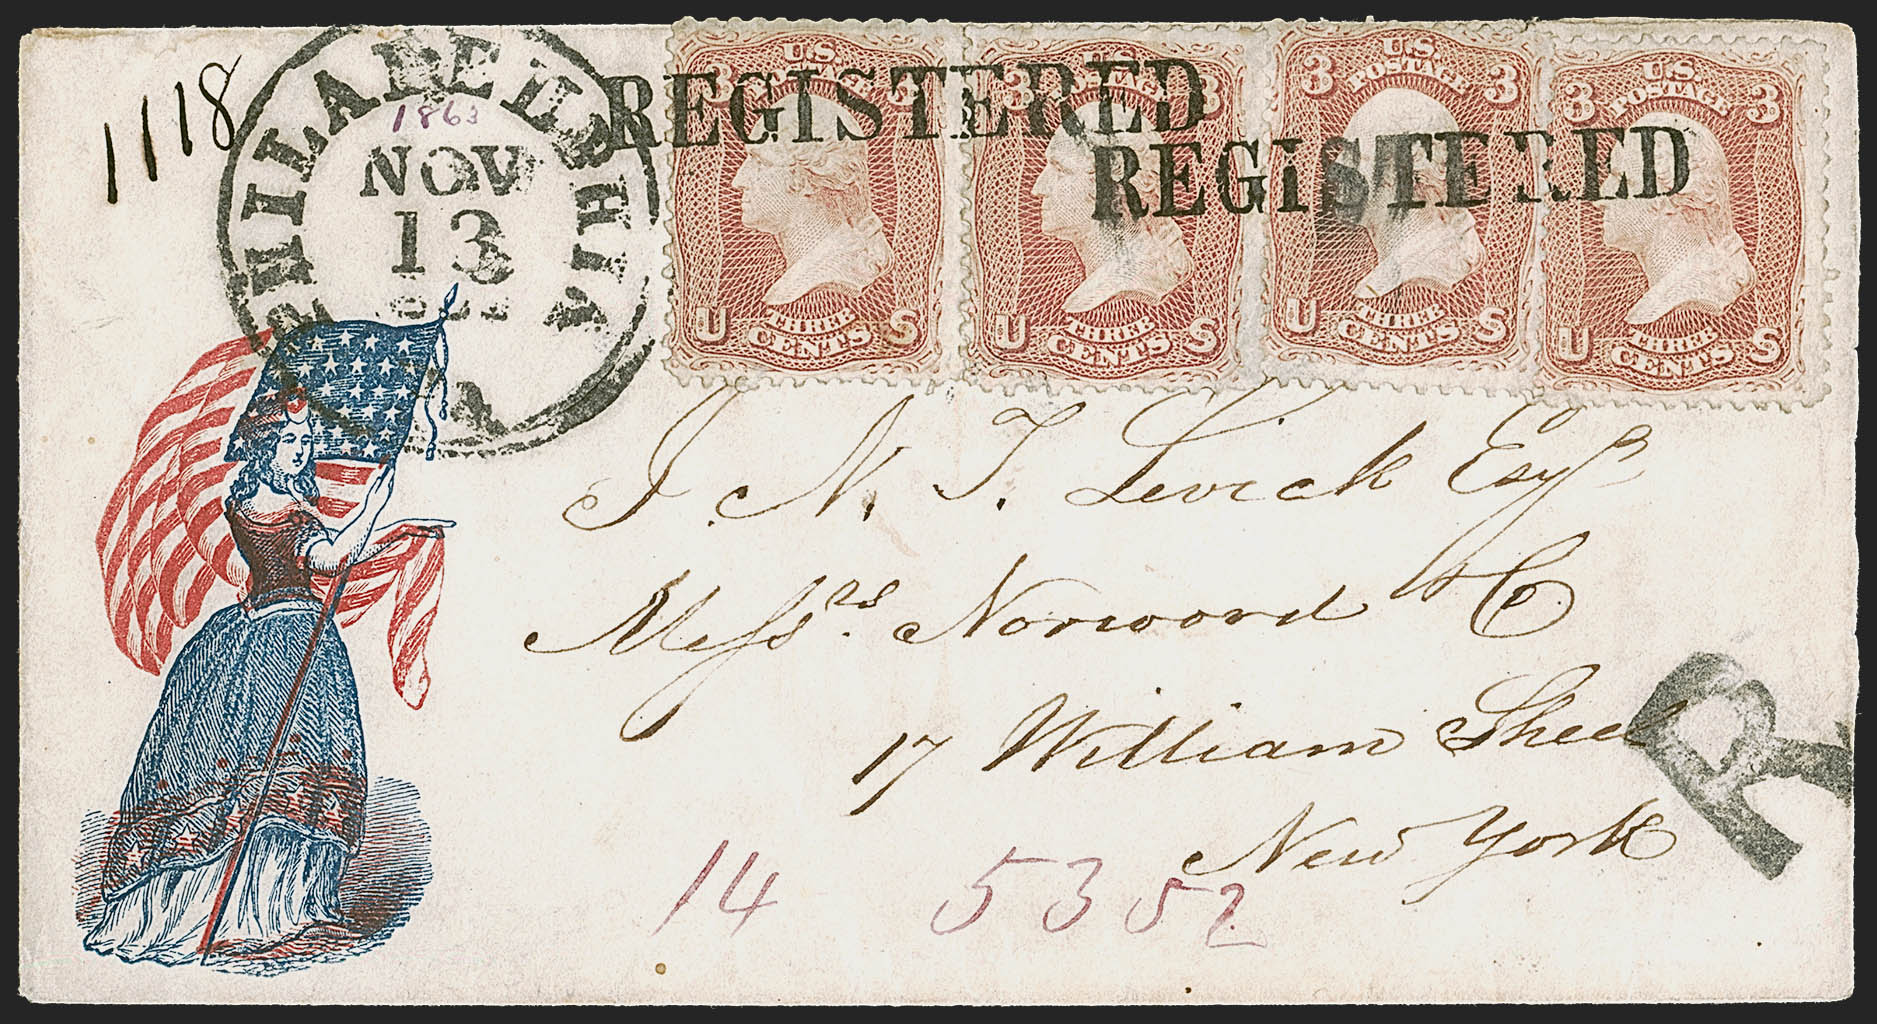 1118
PHILADELPHIA
1863
NOV
13
PA
REGISTERED
REGISTERED
U.S. POSTAGE 3 3 U THREE CENTS S
U.S. POSTAGE 3 3 U THREE CENTS S
U.S. POSTAGE 3 3 U THREE CENTS S
U.S. POSTAGE 3 3 U THREE CENTS S
J. N. T. Levick Esqr
Messrs. Norwood & Co.
17 William Street
New York
R
14 5352